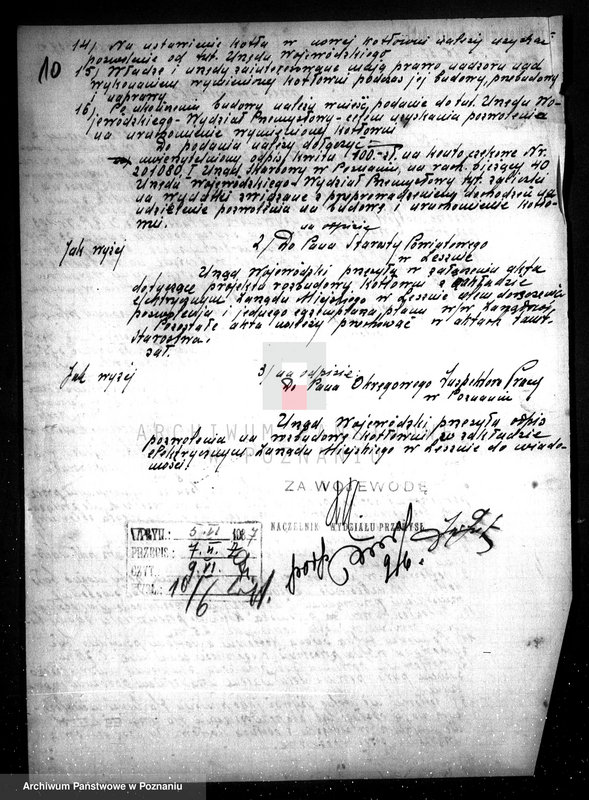 10
14) Na ustawienie kotła w nowej kotłowni należy uzyskać
pozwolenie od tut. Urzędu Wojewódzkiego
15) Władze i urzędy zainteresowane mają prawo nadzoru nad
wykonaniem wymienionej kotłowni podczas jej budowy, przebudowy
i naprawy
16) Po ukończeniu budowy należy wnieść podanie do tut. Urzędu Wo-
jewódzkiego - Wydział Przemysłowy - celem uzyskania pozwolenia
na uruchomienie wymienionej kotłowni
Do podania należy dołączyć:
uwierzytelniony odpis kwitu 100.- zł. na konto czekowe Nr.
201080, I Urząd Skarbowy w Poznaniu, na rach. bieżący 40
Urzędu Wojewódzkiego - Wydział Przemysłowy zaliczki
na wydatki związane z przeprowadzeniem dochodzeń na
udzielenie pozwolenia na budowę i uruchomienie kotło-
wni.
na odpisie
Jak wyżej
2) Do Pana Starosty Powiatowego
w Lesznie
Urząd Wojewódzki przesyła w załączeniu akta
dotyczące projektu rozbudowy kotłowni z zakładzie
elektrycznym Zarządu Miejskiego w Lesznie celem doręczenia
pozwolenia i jednego egzemplarza planu w/w Zarządowi
Pozostałe akta należy przechować w aktach tamt.
Starostwa.
zał.
Jak wyżej
3) na odpisie:
Do Pana Okręgowego Inspektora Pracy
w Poznaniu
Urząd Wojewódzki przesyła odpis
pozwolenia na rozbudowę kotłowni w zakładzie
elektrycznym Zarządu Miejskiego w Lesznie do wiado-
mości
ARCHIWUM
POZNANIU
ZA WOJEWODĘ
NACZELNIK WYDZIAŁU PRZEMYSŁ.
WPŁYN.: 5. VI 1937
PRZEPIS.: 7. VI.
CZYT. 9. VI.
10/6
Archiwum Państwowe w Poznaniu